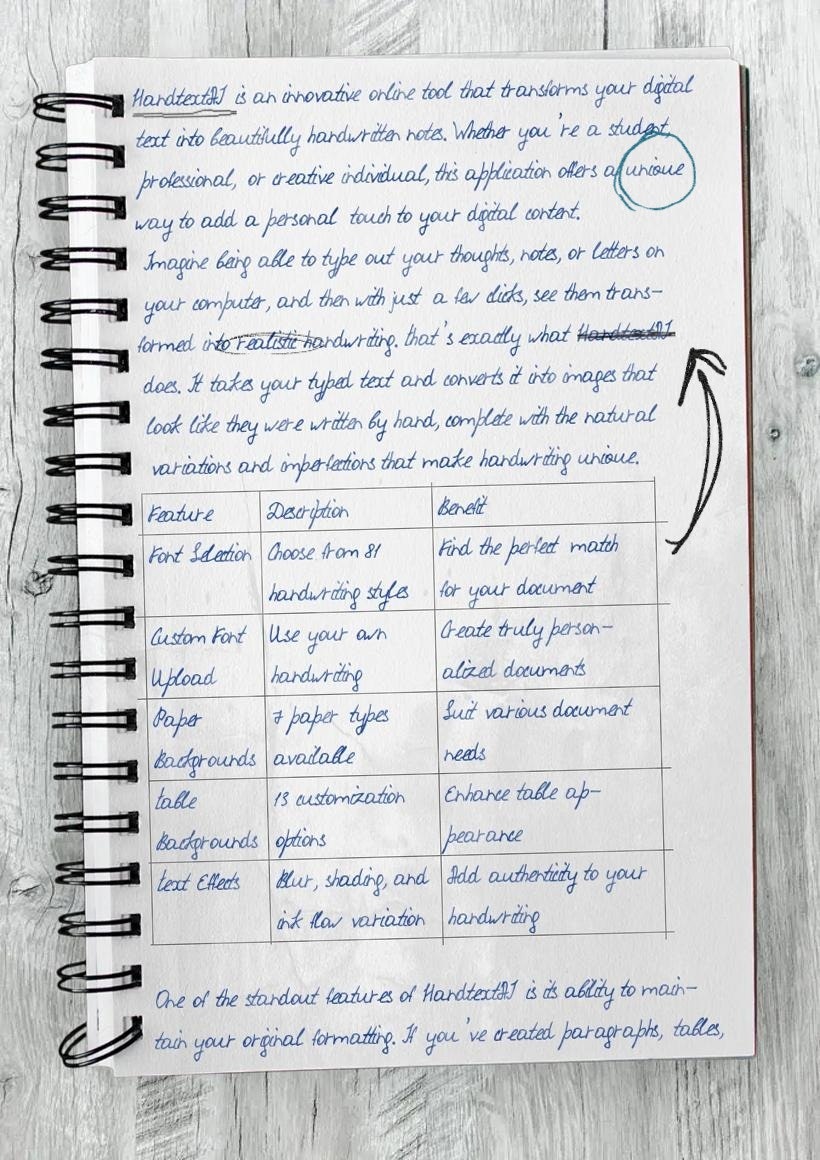 HandtextAI is an innovative online tool that transforms your digital
text into beautifully handwritten notes. Whether you're a student,
professional, or creative individual, this application offers a unique
way to add a personal touch to your digital content.
Imagine being able to type out your thoughts, notes, or letters on
your computer, and then with just a few clicks, see them trans-
formed into realistic handwriting. that's exactly what HandtextAI
does. It takes your typed text and converts it into images that
look like they were written by hand, complete with the natural
variations and imperfections that make handwriting unique.
Feature Description Benefit
Font Selection Choose from 81 Find the perfect match
handwriting styles for your document
Custom Font Use your own Create truly person-
Upload handwriting alized documents
Paper 7 paper types Suit various document
Backgrounds available needs
table 13 customization Enhance table ap-
Backgrounds options pearance
text Effects Blur, shading, and Add authenticity to your
ink flow variation handwriting
One of the standout features of HandtextAI is its ability to main-
tain your original formatting. If you've created paragraphs, tables,